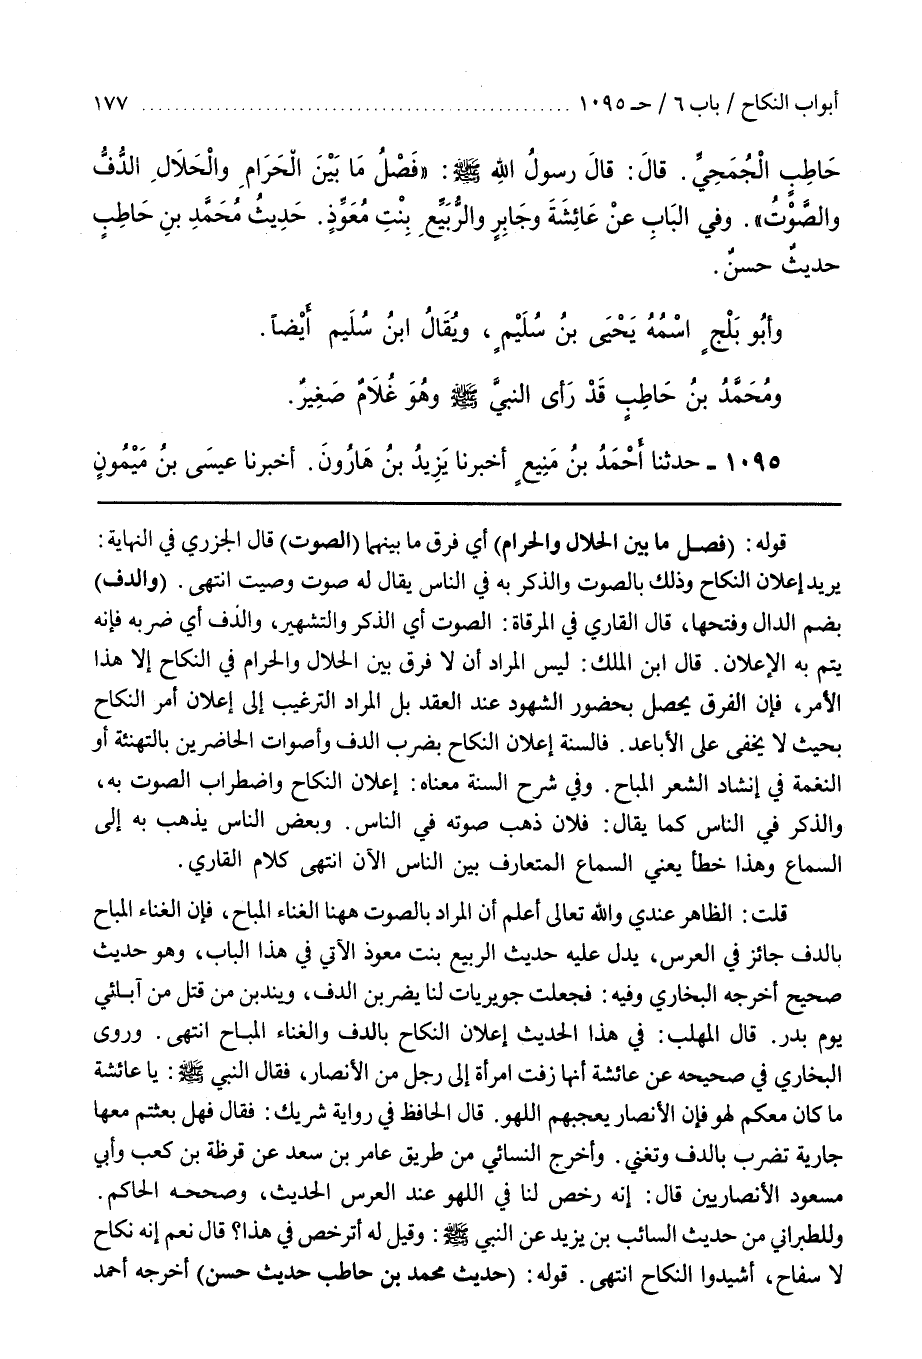 أبواب النكاح / باب ٦ / حـ ١٠٩٥ ........................................................ ١٧٧
حَاطِبٍ الْجُمَحِيِّ. قالَ: قالَ رسولُ اللهِ ﷺ: «فَصْلُ مَا بَيْنَ الْحَرَامِ والْحَلَالِ الدُّفُّ
والصَّوْتُ». وفي البَابِ عنْ عَائِشَةَ وجَابِرٍ والرُّبَيِّعِ بِنْتِ مُعَوِّذٍ. حَدِيثُ مُحَمَّدِ بنِ حَاطِبٍ
حديثٌ حسنٌ.
وأبُو بَلْجٍ اسْمُهُ يَحْيَى بنُ سُلَيْمٍ، ويُقَالُ ابنُ سُلَيم أَيْضاً.
ومُحَمَّدُ بنُ حَاطِبٍ قَدْ رَأى النبيَّ ﷺ وهُوَ غُلَامٌ صَغِيرٌ.
١٠٩٥ ـ حدثنا أَحْمَدُ بنُ مَنِيعٍ أخبرنا يَزِيدُ بنُ هَارُونَ. أخبرنا عيسَى بنُ مَيْمُونٍ
قوله: (فصل ما بين الحلال والحرام) أي فرق ما بينهما (الصوت) قال الجزري في النهاية:
يريد إعلان النكاح وذلك بالصوت والذكر به في الناس يقال له صوت وصيت انتهى. (والدف)
بضم الدال وفتحها، قال القاري في المرقاة: الصوت أي الذكر والتشهير، والدف أي ضربه فإنه
يتم به الإعلان. قال ابن الملك: ليس المراد أن لا فرق بين الحلال والحرام في النكاح إلا هذا
الأمر، فإن الفرق يحصل بحضور الشهود عند العقد بل المراد الترغيب إلى إعلان أمر النكاح
بحيث لا يخفى على الأباعد. فالسنة إعلان النكاح بضرب الدف وأصوات الحاضرين بالتهنئة أو
النغمة في إنشاد الشعر المباح. وفي شرح السنة معناه: إعلان النكاح واضطراب الصوت به،
والذكر في الناس كما يقال: فلان ذهب صوته في الناس. وبعض الناس يذهب به إلى
السماع وهذا خطأ يعني السماع المتعارف بين الناس الآن انتهى كلام القاري.
قلت: الظاهر عندي والله تعالى أعلم أن المراد بالصوت ههنا الغناء المباح، فإن الغناء المباح
بالدف جائز في العرس، يدل عليه حديث الربيع بنت معوذ الآتي في هذا الباب، وهو حديث
صحيح أخرجه البخاري وفيه: فجعلت جويريات لنا يضربن الدف، ويندبن من قتل من آبائي
يوم بدر. قال المهلب: في هذا الحديث إعلان النكاح بالدف والغناء المباح انتهى. وروى
البخاري في صحيحه عن عائشة أنها زفت امرأة إلى رجل من الأنصار، فقال النبي ﷺ: يا عائشة
ما كان معكم لهو فإن الأنصار يعجبهم اللهو. قال الحافظ في رواية شريك: فقال فهل بعثتم معها
جارية تضرب بالدف وتغني. وأخرج النسائي من طريق عامر بن سعد عن قرظة بن كعب وأبي
مسعود الأنصاريين قال: إنه رخص لنا في اللهو عند العرس الحديث، وصححه الحاكم.
وللطبراني من حديث السائب بن يزيد عن النبي ﷺ: وقيل له أترخص في هذا؟ قال نعم إنه نكاح
لا سفاح، أشيدوا النكاح انتهى. قوله: (حديث محمد بن حاطب حديث حسن) أخرجه أحمد